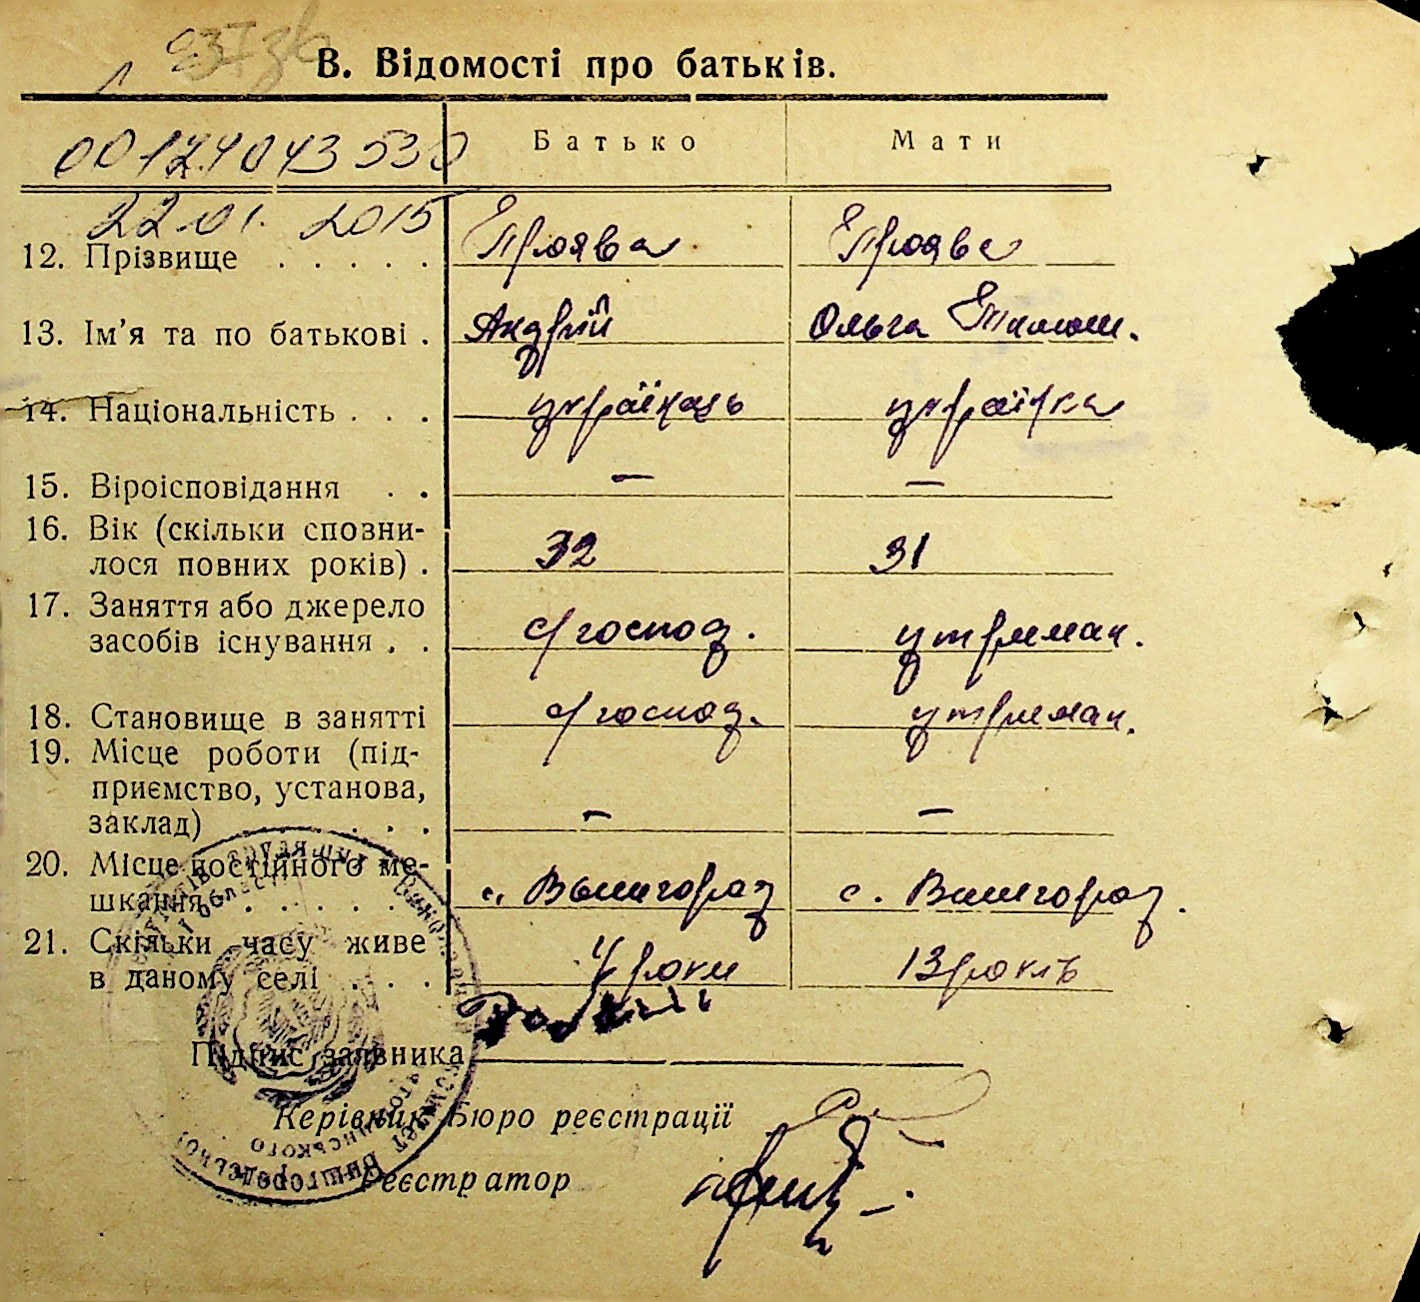 В. Відомості про батьків.
00174043530 Батько Мати
22.01.2015
12. Прізвище . . . . . Проява Проява
13. Ім’я та по батькові . Андрій Ольга Тимош.
14. Національність . . . українець українка
15. Віроісповідання . . — —
16. Вік (скільки сповни-
лося повних років) . 32 31
17. Заняття або джерело
засобів існування . . с/господ. утриман.
18. Становище в занятті с/господ. утриман.
19. Місце роботи (під-
приємство, установа,
заклад) . . . . . — —
20. Місце постійного ме-
шкання . . . . . с. Вышгород с. Вишгород.
21. Скільки часу живе
в даному селі . . . 4 роки 13 років
Підпис заявника
Керівник Бюро реєстрації
Реєстратор